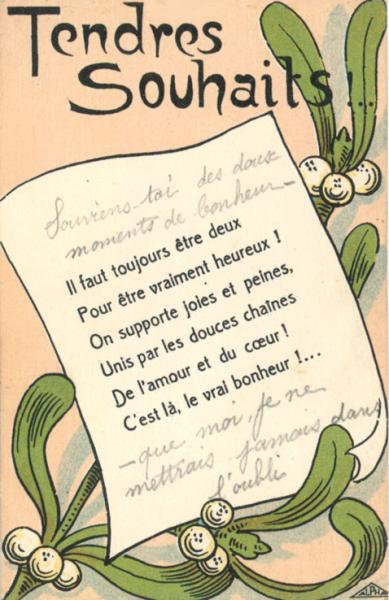 Tendres
Souhaits !..
Souviens-toi des doux
moments de bonheur-
Il faut toujours être deux
Pour être vraiment heureux !
On supporte joies et peines,
Unis par les douces chaînes
De l'amour et du cœur !
C'est là, le vrai bonheur !...
-que moi, je ne
mettrais jamais dans
l'oubli